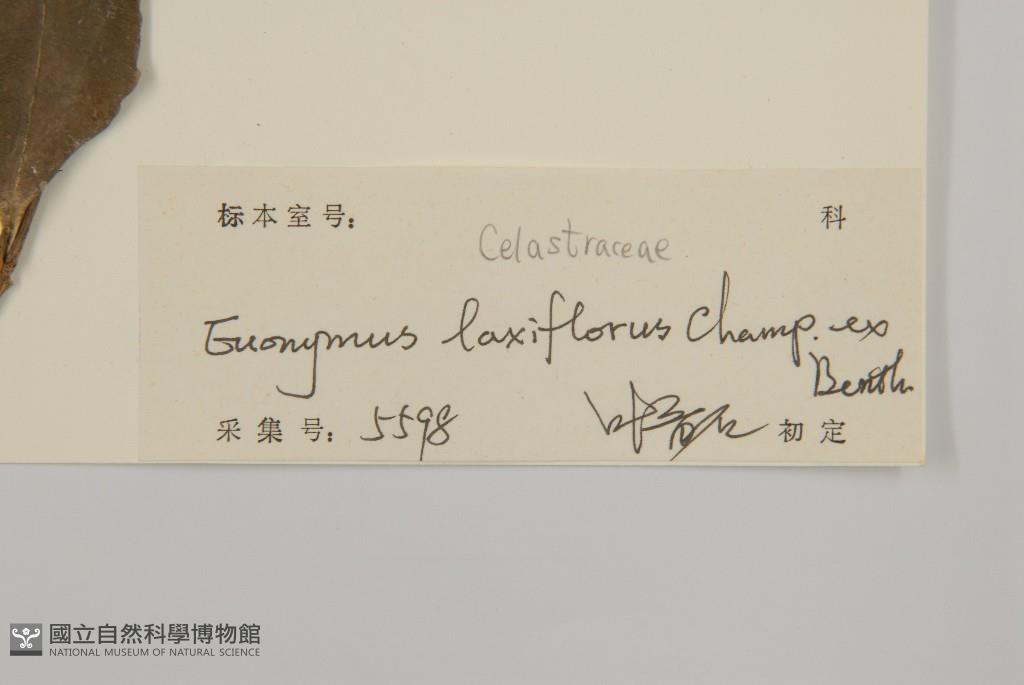 标本室号： 科
Celastraceae
Euonymus laxiflorus Champ. ex
Benth.
采集号：5598 初定
國立自然科學博物館
NATIONAL MUSEUM OF NATURAL SCIENCE